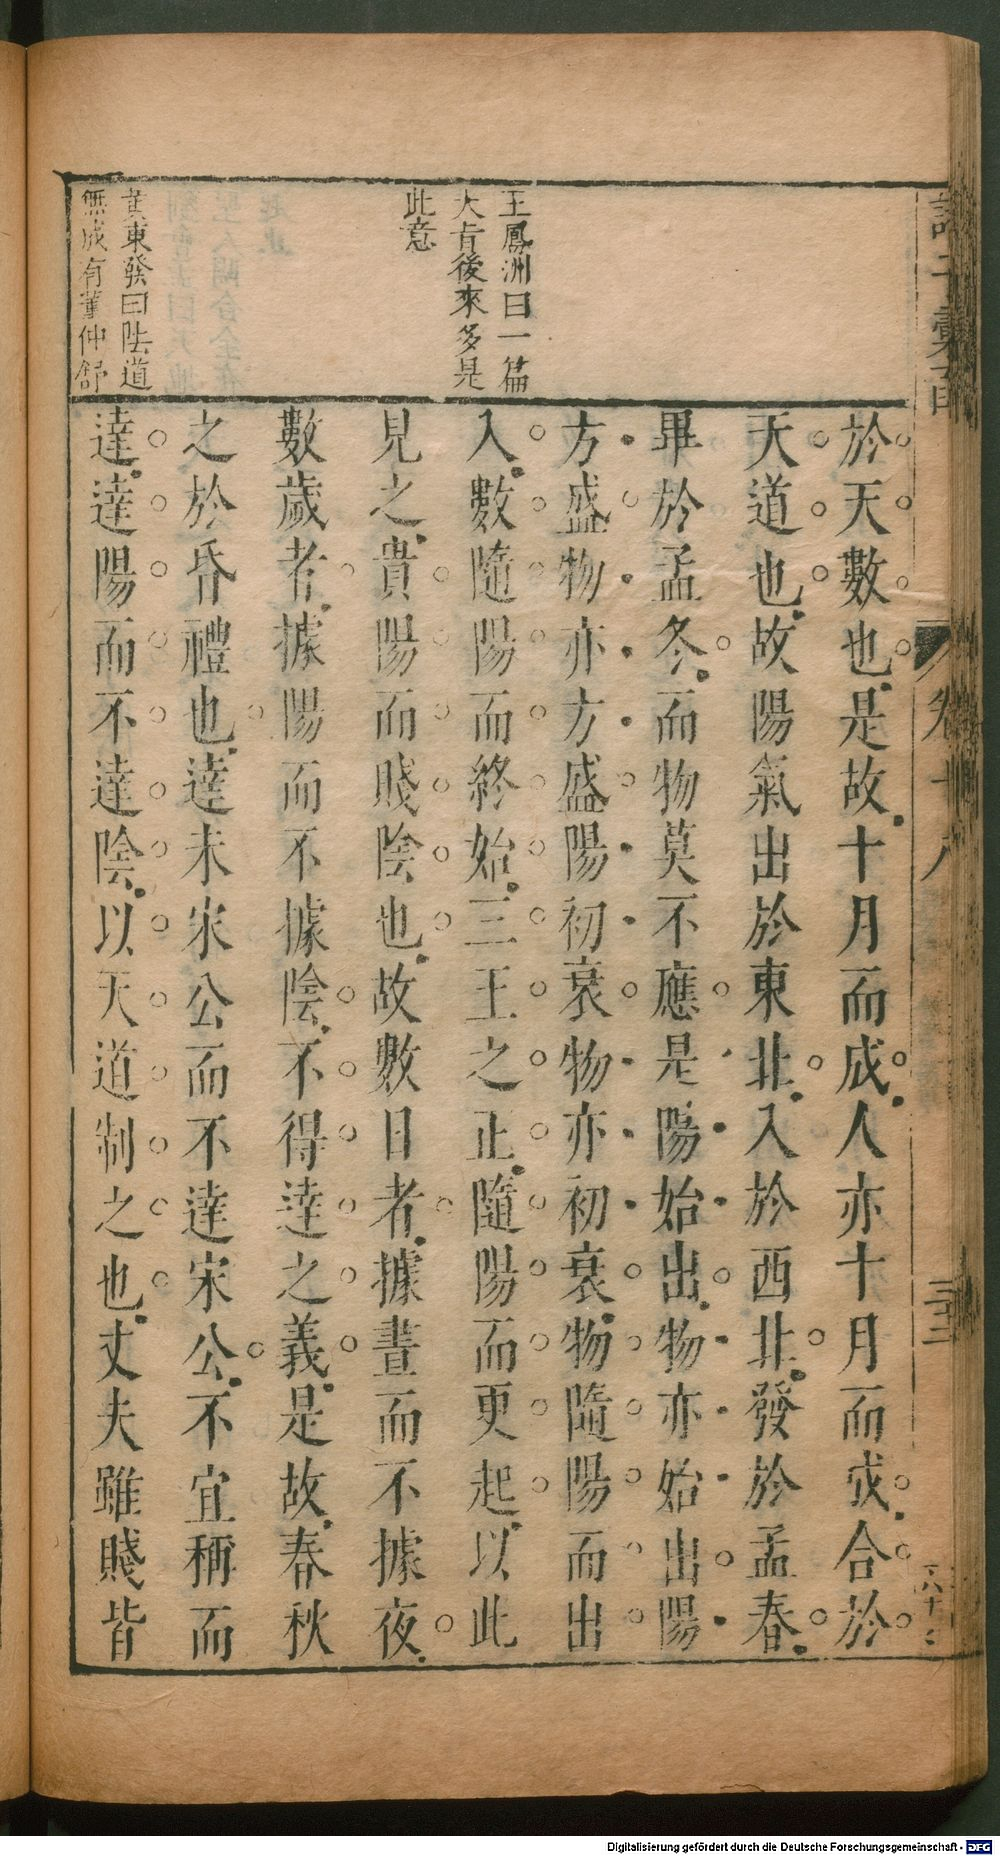 王鳳洲曰一篇
大旨後來多是
此意
黃東發曰陰道
無成有董仲舒
於天數也是故十月而成人亦十月而成合於
天道也故陽氣出於東北入於西北發於孟春
畢於孟冬而物莫不應是陽始出物亦始出陽
方盛物亦方盛陽初衰物亦初衰物隨陽而出
入數隨陽而終始三王之正隨陽而更起以此
見之貴陽而賤陰也故數日者據晝而不據夜
數歲者據陽而不據陰不得達之義是故春秋
之於昏禮也達未宋公而不達宋公不宜稱而
達達陽而不達陰以天道制之也丈夫雖賤皆
卷十八
Digitalisierung gefördert durch die Deutsche Forschungsgemeinschaft - DFG